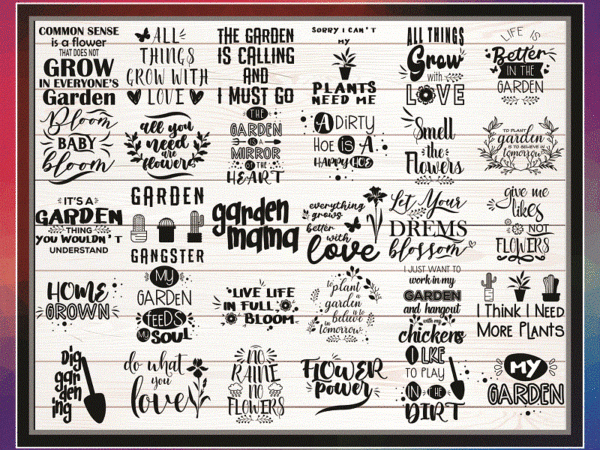 COMMON SENSE
is a flower
THAT DOES NOT
GROW
IN EVERYONE'S
Garden
ALL
THINGS
GROW WITH
LOVE
THE GARDEN
IS CALLING
AND
I MUST GO
SORRY I CAN'T
MY
PLANTS
NEED ME
ALL THINGS
Grow
with
LOVE
LIFE IS
Better
IN THE
GARDEN
Bloom
BABY
bloom
all you
need
are
flowers
THE
GARDEN
IS A
MIRROR
OF THE
HEART
A DIRTY
HOE IS A
HAPPY HOE
Smell
the
Flowers
TO PLANT A
garden
IS TO BELIEVE IN
tomorrow
IT'S A
GARDEN
THING
YOU WOULDN'T
UNDERSTAND
GARDEN
GANGSTER
garden
mama
everything
grows
better
with
love
Let Your
DREMS
blossom
give me
likes
NOT
FLOWERS
HOME
GROWN
MY
GARDEN
FEEDS
MY
SOUL
"LIVE LIFE
IN FULL
BLOOM"
to plant
a
garden
is to
believe
in
tomorrow
I JUST WANT TO
work in my
GARDEN
and hangout
with my
chickens
I THINK I NEED
MORE PLANTS
Dig
gar
den
ing
do what
you
love
NO
RAINE
NO
FLOWERS
FLOWER
power
I LIKE
TO PLAY
IN THE
DIRT
MY
GARDEN